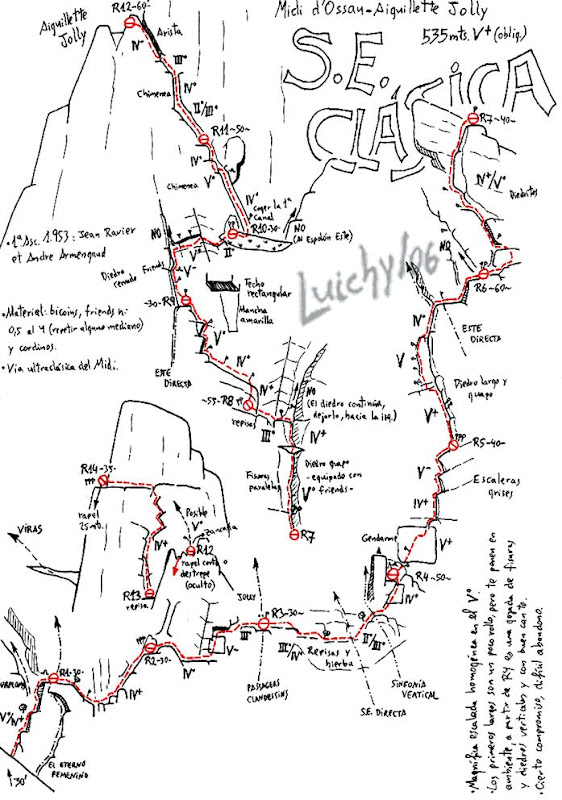 Midi d'Ossau-Aiguillette Jolly
535mts. V+ (oblig.)
S.E.
CLÁSICA
Aiguillette
Jolly
R12-60-
Arista
IVº
IIIº
Chimenea
IVº
II/IIIº
R11-50-
IVº
Vº
Chimenea
IVº
Coger la 1ª
canal
NO
(Al Espolón Este)
R10-30-
IIº
R7-40-
IV/Vº
Dieditos
NO
R6-60-
•1ª Asc. 1.953: Jean Ravier
et Andre Armengaud
•Material: bicoins, friends n:
0,5 al 4 (repetir alguno mediano)
y cordinos.
•Via ultraclásica del Midi.
NO
Diedro
cerrado
Friends
V-
-30-R9
Techo
rectangular
Mancha
amarilla
Luichy/06
Vº
IVº
ESTE
DIRECTA
-55-R8
IV+
repisa
IIIº
NO
(El diedro continúa,
dejarlo, hacia la izq.)
IV+
Fisuras
paralelas
Diedro guapo
-equipado con
Vº friends-
R7
IVº
ESTE
DIRECTA
Vº
Diedro largo y
guapo
V+
R5-40-
V-
Escaleras
grises
IV+
V+
Gendarme
R4-50-
IVº
R14-35-
rapel
25mt.
Posible
Vº
R12
rapel corto o
destrepe
(oculto)
R13
repisa
VIRAS
JOLLY
R3-30-
III/IVº
Repisas y
hierba
II/IIIº
SINFONÍA
VERTICAL
S.E. DIRECTA
PASSAGERS
CLANDESTINS
V-
IVº
R2-30-
IV+
R1-30-
V/IV+
EL ETERNO
FEMENINO
30'
•Magnífica escalada homogénea en el Vº
•Los primeros largos son un poco rollo, pero te ponen en
ambiente, a partir de R4 es una gozada de fisuras
y diedros verticales y con buen canto.
•Cierto compromiso, difícil abandono.